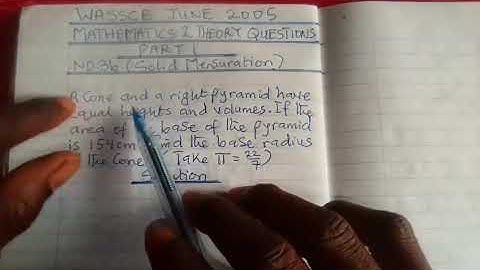 WASSCE JUNE 2005
MATHEMATICS 2 THEORY QUESTIONS
PART 1
NO.3b (Solid Mensuration)
A Cone and a right pyramid have
equal heights and volumes. If the
area of base of the pyramid
is 154cm and the base radius
the Cone. (Take π = 22/7)
Solution